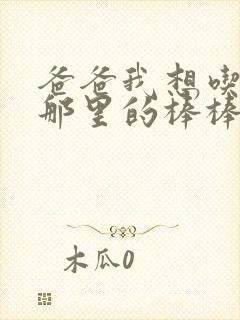 爸爸我想喫
那里的棒棒
木瓜0